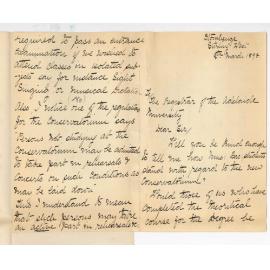 Stonhenge
6th March 1898
The Registrar of the Adelaide
University
Dear Sir,
Will you be kind enough
to tell me how music students
stand with regard to the new
Conservatorium?
Would those of us who have
completed the theoretical
course for the Degree be
required to pass an entrance
examination if we wished to
attend classes in isolated sub-
jects say for instance Sight
Singing or Musical Dictation
Also I notice one of the regulations
for the Conservatorium says
"Persons not studying at the
Conservatorium may be admitted
to take part in rehearsals &
concerts on such conditions as
may be laid down"
This I understand to mean
that such persons may take
an active part in rehearsals &c